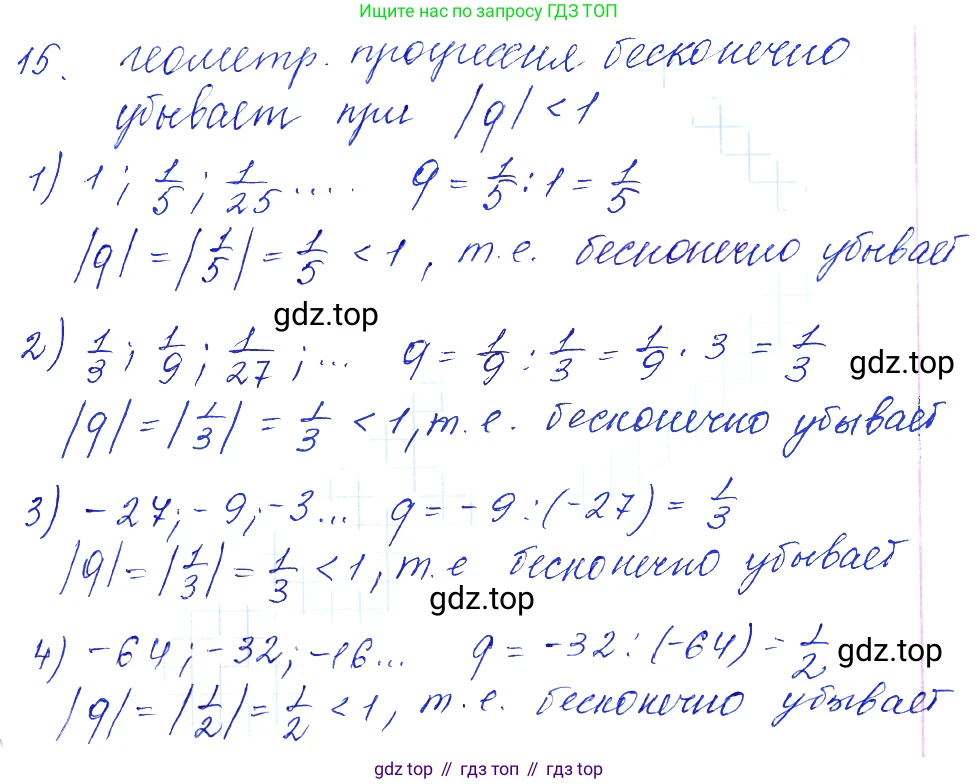 Ищите нас по запросу ГДЗ ТОП
15. геометр. прогрессия бесконечно
убывает при |q| < 1
1) 1; 1/5; 1/25 .... q = 1/5 : 1 = 1/5
|q| = |1/5| = 1/5 < 1, т.е. бесконечно убывает
gdz.top
2) 1/3; 1/9; 1/27; ... q = 1/9 : 1/3 = 1/9 · 3 = 1/3
gdz.top
|q| = |1/3| = 1/3 < 1, т.е. бесконечно убывает
3) -27; -9; -3... q = -9 : (-27) = 1/3
|q| = |1/3| = 1/3 < 1, т.е бесконечно убывает
gdz.top
4) -64; -32; -16... q = -32 : (-64) = 1/2
gdz.top
|q| = |1/2| = 1/2 < 1, т.е. бесконечно убывает
gdz top // гдз топ // gdz.top